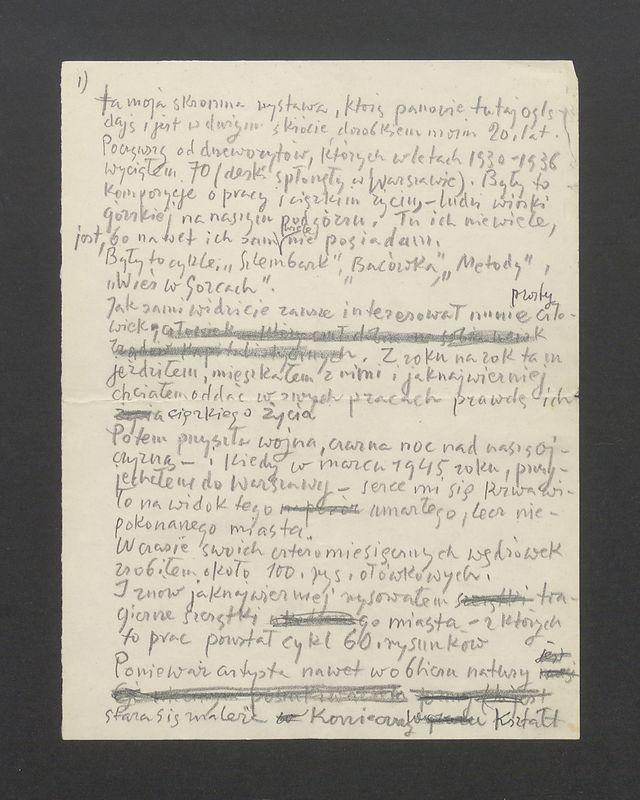 1)
ta moja skromna wystawa, którą panowie tutaj oglą-
dają i jest w dużym skrócie, dorobkiem moim 20. lat.
Począwszy od drzeworytów, których w latach 1930-1936
wyciąłem 70 (deski spłonęły w Warszawie). Były to
kompozycje o pracy i ciężkim życiu, – ludu wiejski
górskiej na naszym podgórzu. Tu ich niewiele,
jest, bo nawet ich sam wiele nie posiadam.
Były to cykle, „Sle̶mbark", „Bacówka", „Metody",
„Wieś w Gorcach".
Jak sami widzicie zawsze interesował mnie prosty czło-
wiek
. Z roku na rok tam
jeździłem, mieszkałem z nimi i jaknajwierniej
chciałem oddać w swych pracach prawdę – ich
ciężkiego życia
Potem przyszła wojna, czarna noc nad naszą oj-
czyzną – i kiedy w marcu 1945 roku, przy-
jechałem do Warszawy – serce mi się krwawi-
ło na widok tego umarłego, lecz nie-
pokonanego miasta.
W czasie swoich czteromiesięcznych wędrówek
zrobiłem około 100. rys. ołówkowych.
I znów jaknajwierniej rysowałem tra-
giczne szczątki go miasta – z których
to prac powstał cykl 60. rysunków
Ponieważ artysta nawet w obliczu natury
stara się znaleźć konieczny kształt